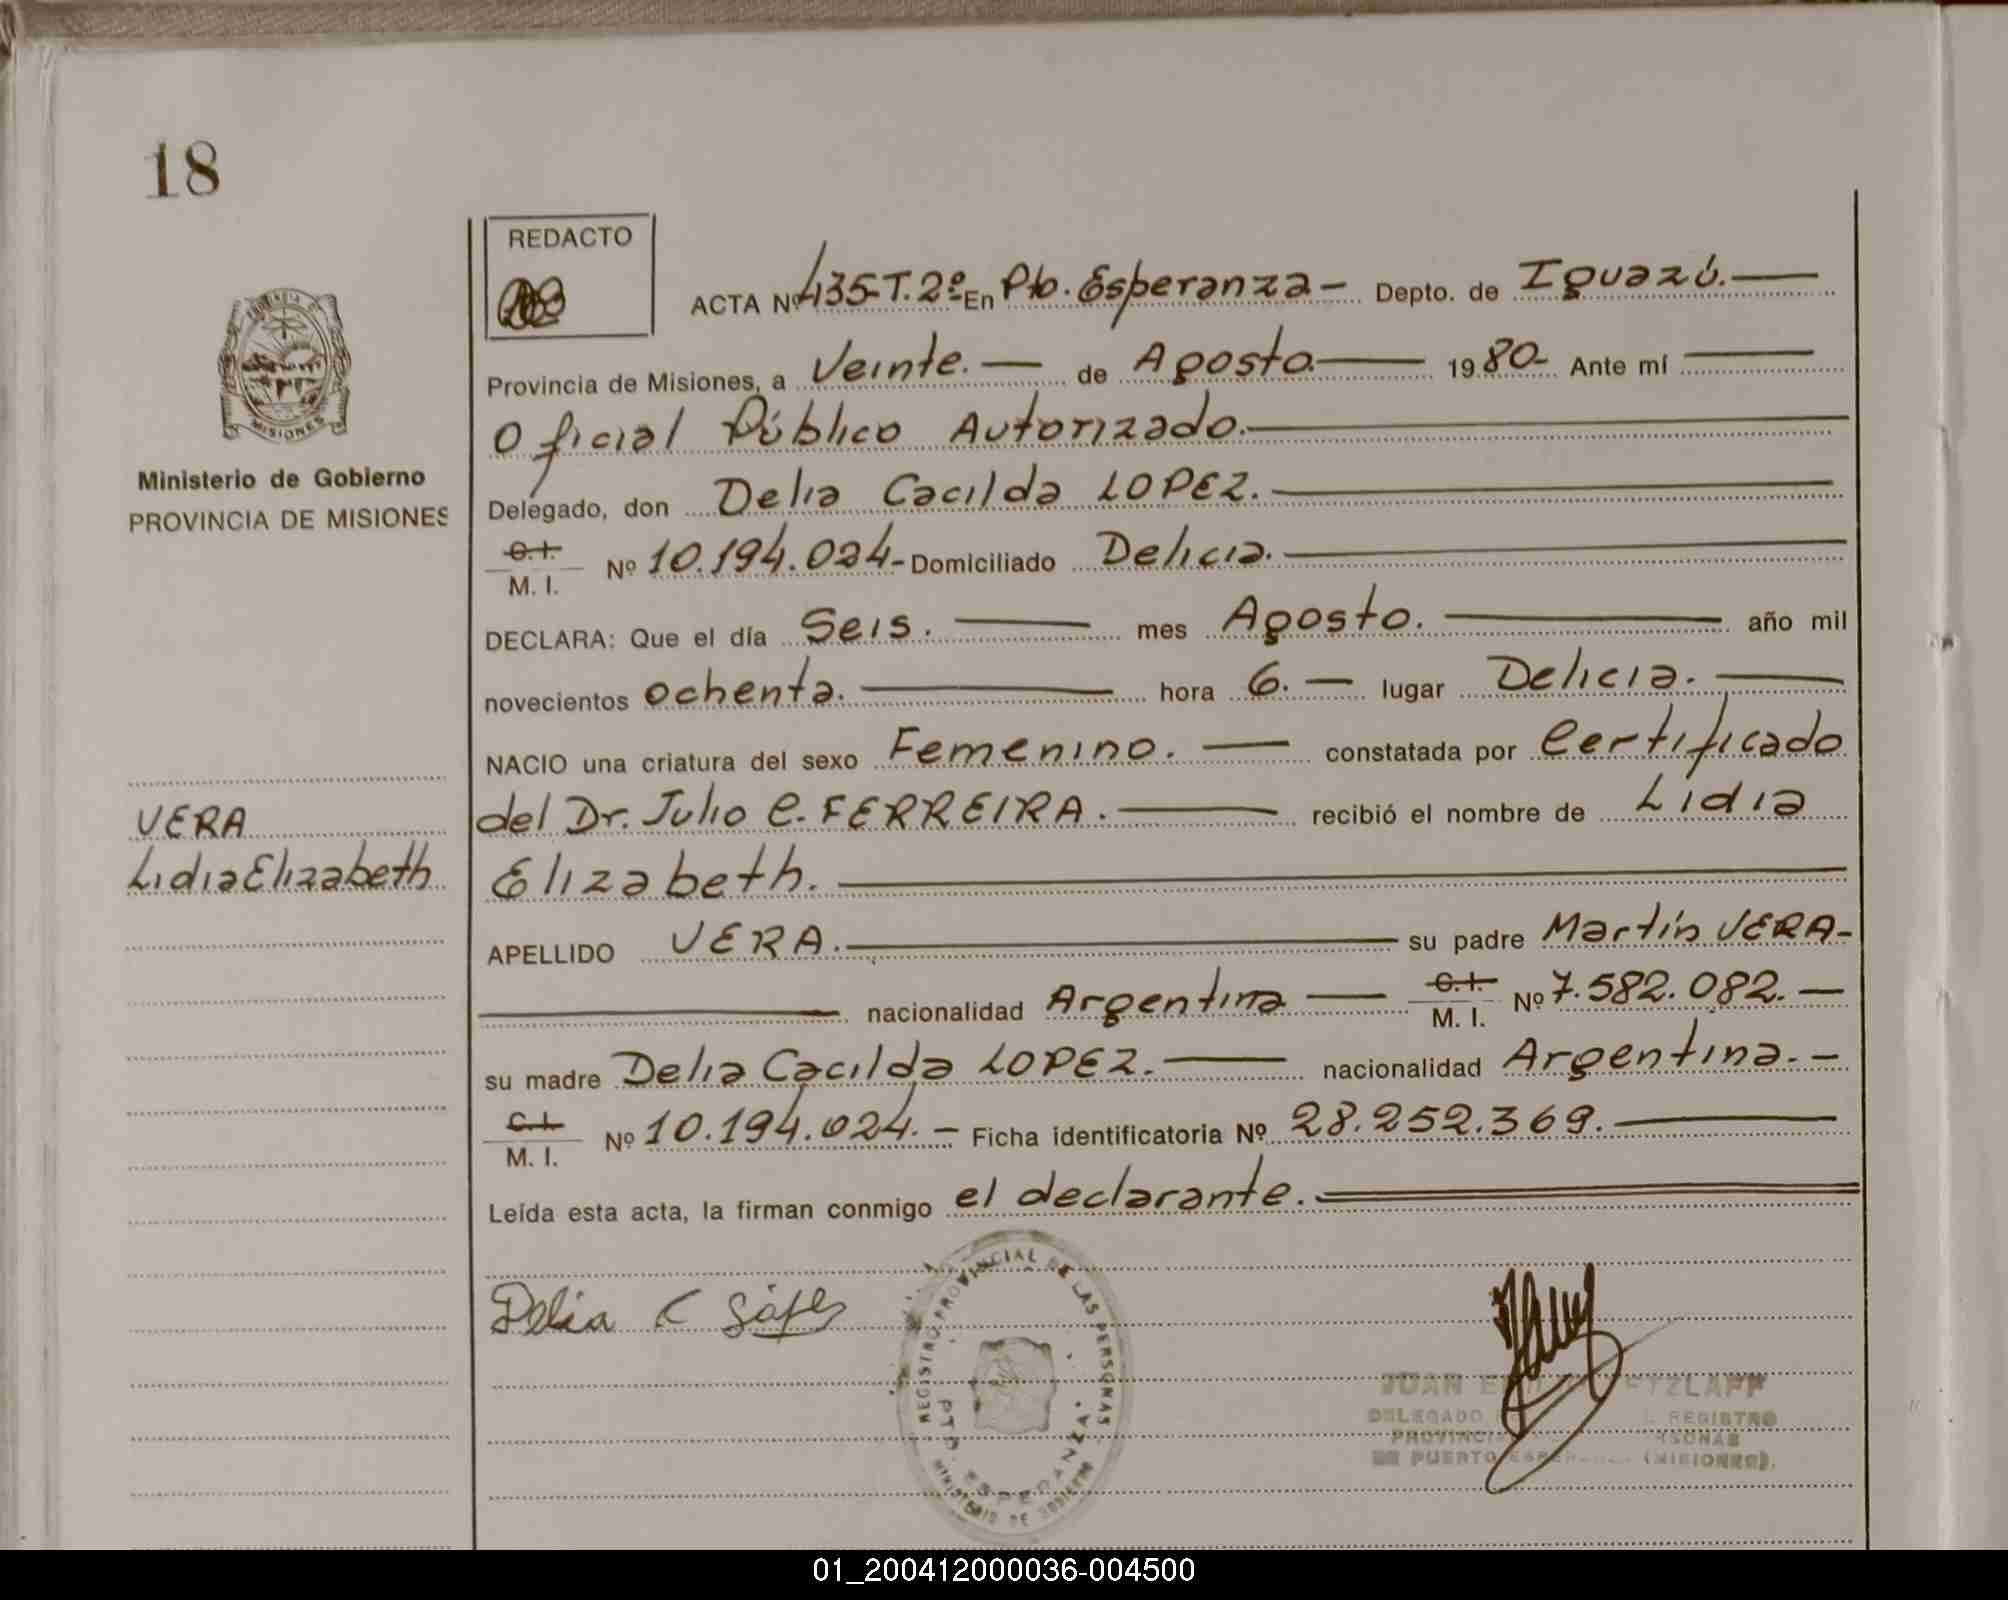 18
REDACTO
ACTA Nº 435-T.2º En Pto. Esperanza - Depto. de Iguazú.
Provincia de Misiones, a Veinte. de Agosto 1980- Ante mí
Oficial Público Autorizado.
Delegado, don Delia Cacilda LOPEZ.
C.I.
M. I. Nº 10.194.024- Domiciliado Delicia.
DECLARA: Que el día Seis. mes Agosto. año mil
novecientos ochenta. hora 6. lugar Delicia.
NACIO una criatura del sexo Femenino. constatada por Certificado
del Dr. Julio C. FERREIRA. recibió el nombre de Lidia
Elizabeth.
APELLIDO VERA. su padre Martín VERA-
nacionalidad Argentina C.I. M. I. Nº 7.582.082.
su madre Delia Cacilda LOPEZ. nacionalidad Argentina.-
C.I.
M. I. Nº 10.194.024. - Ficha identificatoria Nº 28.252.369.
Leída esta acta, la firman conmigo el declarante.
PROVINCIA DE
MISIONES
Ministerio de Gobierno
PROVINCIA DE MISIONES
VERA
Lidia Elizabeth
Delia C López
REGISTRO PROVINCIAL DE LAS PERSONAS
PTO. ESPERANZA
MINISTERIO DE GOBIERNO
JUAN ETZLAFF
DELEGADO REGISTRO
PROVINCI RSONAS
DE PUERTO ESPER (MISIONES).
01_200412000036-004500